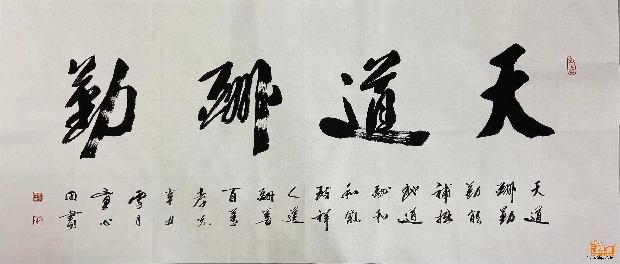 天道酬勤
天道
酬勤
勤能
補拙
地道
酬和
和能
致祥
人道
酬善
百善
孝先
辛丑
雪月
童心
書